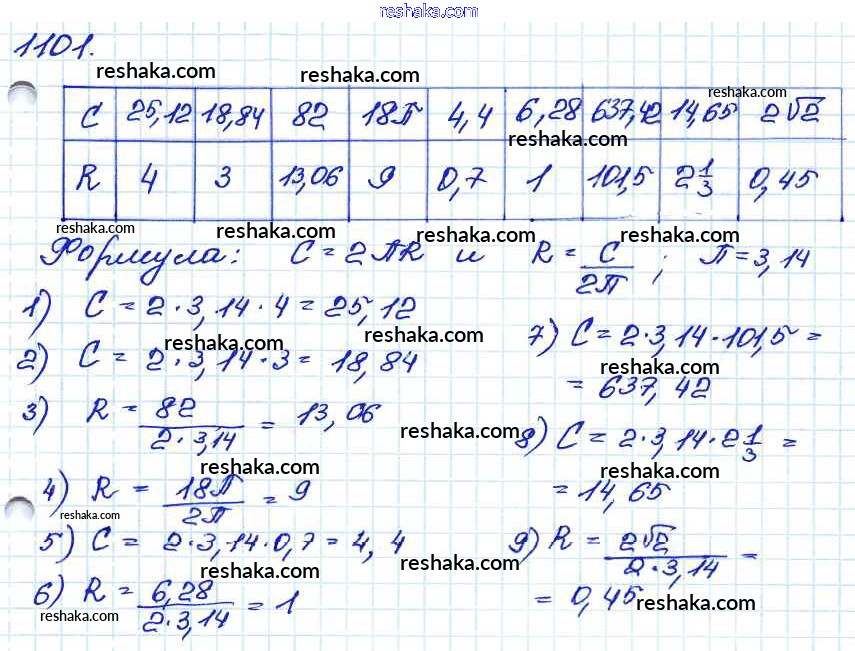 reshaka.com
1101.
reshaka.com reshaka.com reshaka.com
C 25,12 18,84 82 18π 4,4 6,28 637,42 14,65 2√2
reshaka.com
R 4 3 13,06 9 0,7 1 101,5 2 1/3 0,45
reshaka.com reshaka.com reshaka.com reshaka.com
Формула: C = 2πR и R = C/2π ; π = 3,14
1) C = 2·3,14·4 = 25,12
reshaka.com reshaka.com
2) C = 2·3,14·3 = 18,84
3) R = 82/2·3,14 = 13,06
reshaka.com
4) R = 18π/2π = 9
reshaka.com
reshaka.com
5) C = 2·3,14·0,7 = 4,4
reshaka.com
6) R = 6,28/2·3,14 = 1
reshaka.com
7) C = 2·3,14·101,5 =
reshaka.com
= 637,42
8) C = 2·3,14·2 1/3 =
reshaka.com
= 14,65
9) R = 2√2/2·3,14 =
reshaka.com
= 0,45
reshaka.com